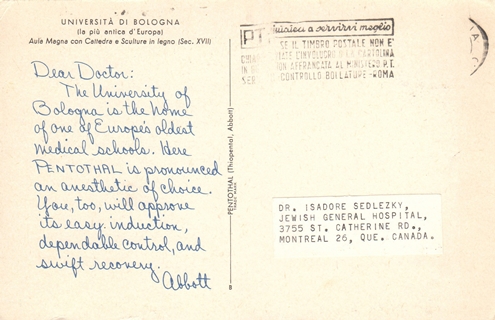 UNIVERSITÀ DI BOLOGNA
(la più antica d'Europa)
Aula Magna con Cattedre e Sculture in legno (Sec. XVII)
Dear Doctor:
The University of
Bologna is the home
of one of Europe's oldest
medical schools. Here
PENTOTHAL is pronounced
an anesthetic of choice.
You, too, will approve
its easy induction,
dependable control, and
swift recovery.
Abbott
PENTOTHAL (Thiopental, Abbott)
PT
a servirvi meglio
SE IL TIMBRO POSTALE NON È
L'INVOLUCRO O LA CARTOLINA
AFFRANCATA AL MINISTERO P.T.
CONTROLLO BOLLATURE-ROMA
DR. ISADORE SEDLEZKY,
JEWISH GENERAL HOSPITAL,
3755 ST. CATHERINE RD.,
MONTREAL 26, QUE. CANADA.